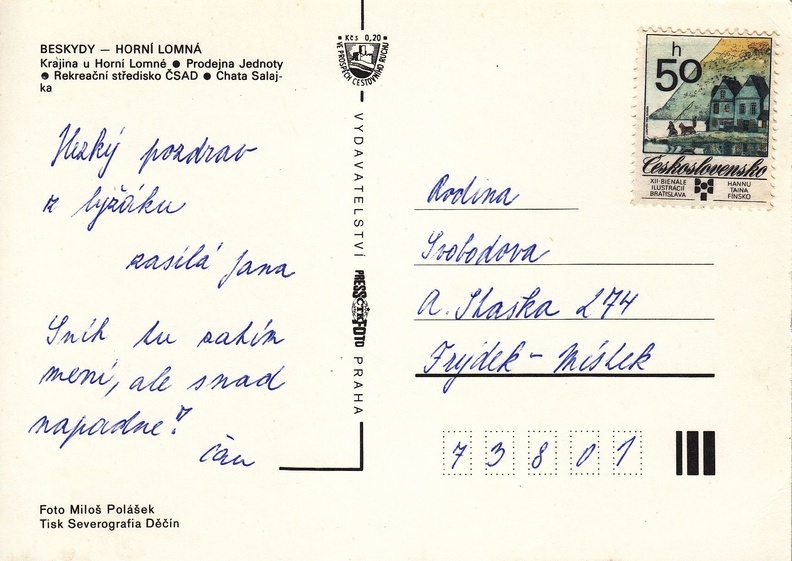 BESKYDY — HORNÍ LOMNÁ
Krajina u Horní Lomné ● Prodejna Jednoty
● Rekreační středisko ČSAD ● Chata Salaj-
ka
Hezký pozdrav
z lyžáku
zasílá Jana
Sníh tu zatím
není, ale snad
napadne?
Čau
Foto Miloš Polášek
Tisk Severografia Děčín
Kčs 0,20
VE PROSPĚCH CESTOVNÍHO RUCHU
VYDAVATELSTVÍ PRESSFOTO PRAHA
ČTK
h
50
Československo
XII. BIENÁLE
ILUSTRÁCIÍ
BRATISLAVA
HANNU
TAINA
FÍNSKO
Rodina
Svobodova
A. Staska 274
Frýdek - Místek
73801